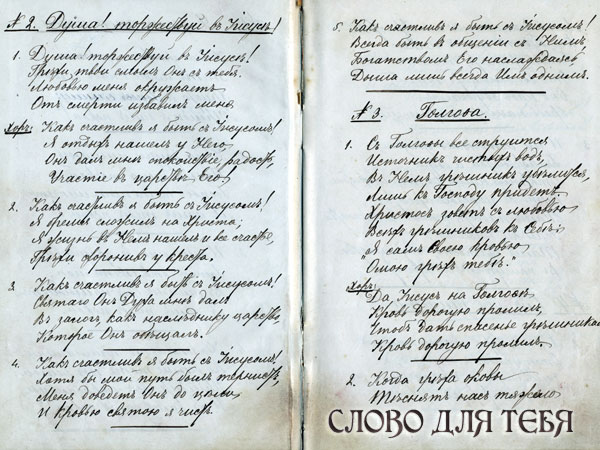 № 2. Душа! торжествуй въ Iисусѣ!
1. Душа! торжествуй въ Iисусѣ!
Грѣхи твои смылъ Онъ съ тебя.
Любовью меня окружаетъ
Отъ смерти избавилъ меня
Хоръ: Какъ счастливъ я быть съ Iисусомъ!
Я отдыхъ нашелъ у Него
Онъ далъ мнѣ спокойствiе, радость,
Участiе въ царствѣ Его!
2. Какъ счастливъ я быть съ Iисусомъ!
Я бремя сложилъ на Христа;
Я жизнь въ Немъ нашелъ и все счастье,
Грѣхи схоронивъ у креста.
3. Какъ счастливъ я быть съ Iисусомъ!
Святаго Онъ Духа мнѣ далъ
Въ залогъ какъ наслѣднику царства,
Которое Онъ обѣщалъ.
4. Какъ счастливъ я быть съ Iисусомъ!
Хотя бы мой путь былъ тернистъ,
Меня доведетъ Онъ до цѣли
И кровью святою я чистъ.
5. Какъ счастливъ я быть съ Iисусомъ!
Всегда быть въ общенiи съ Нимъ,
Богатствомъ Его наслаждаясь
Дыша лишь всегда Имъ однимъ.
№ 3. Голгоѳа.
1. Съ Голгоѳы все струится
Источникъ чистыхъ водъ,
Въ Немъ грѣшникъ убѣлится,
Лишь къ Господу придетъ.
Христосъ зоветъ съ любовью
Всѣхъ грѣшниковъ къ Себѣ:
"Я самъ Своею кровью
Омою грѣхъ тебѣ."
Хоръ:
Да, Iисусъ на Голгоѳѣ
Кровь дорогую пролилъ,
Чтобъ дать спасенье грѣшникамъ
Кровь дорогую пролилъ.
2. Когда грѣха оковы
Тѣснятъ насъ тяжело
СЛОВО ДЛЯ ТЕБЯ